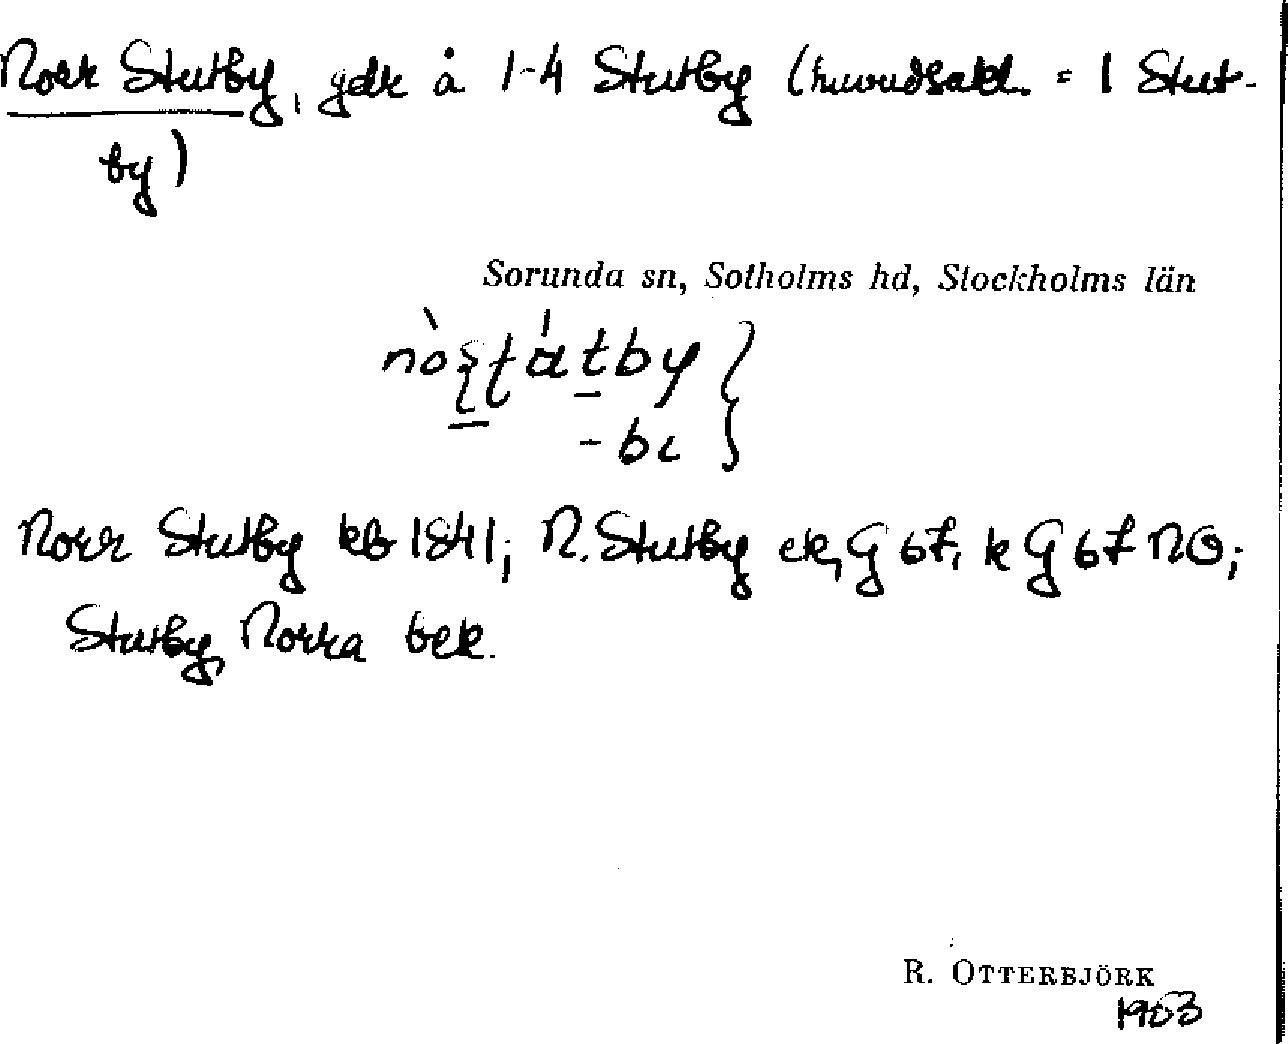 Norr Stutby, gdr å 1-4 Stutby (huvudsakl. = 1 Stut-
by)
Sorunda sn, Sotholms hd, Stockholms län
-bi
Norr Stutby kb 1841; N. Stutby ek, G 67, k G 67 NO;
Stutby, Norra bek.
R. OTTERBJÖRK
1953